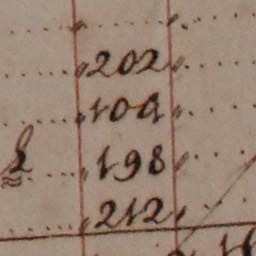 202
109
198
212